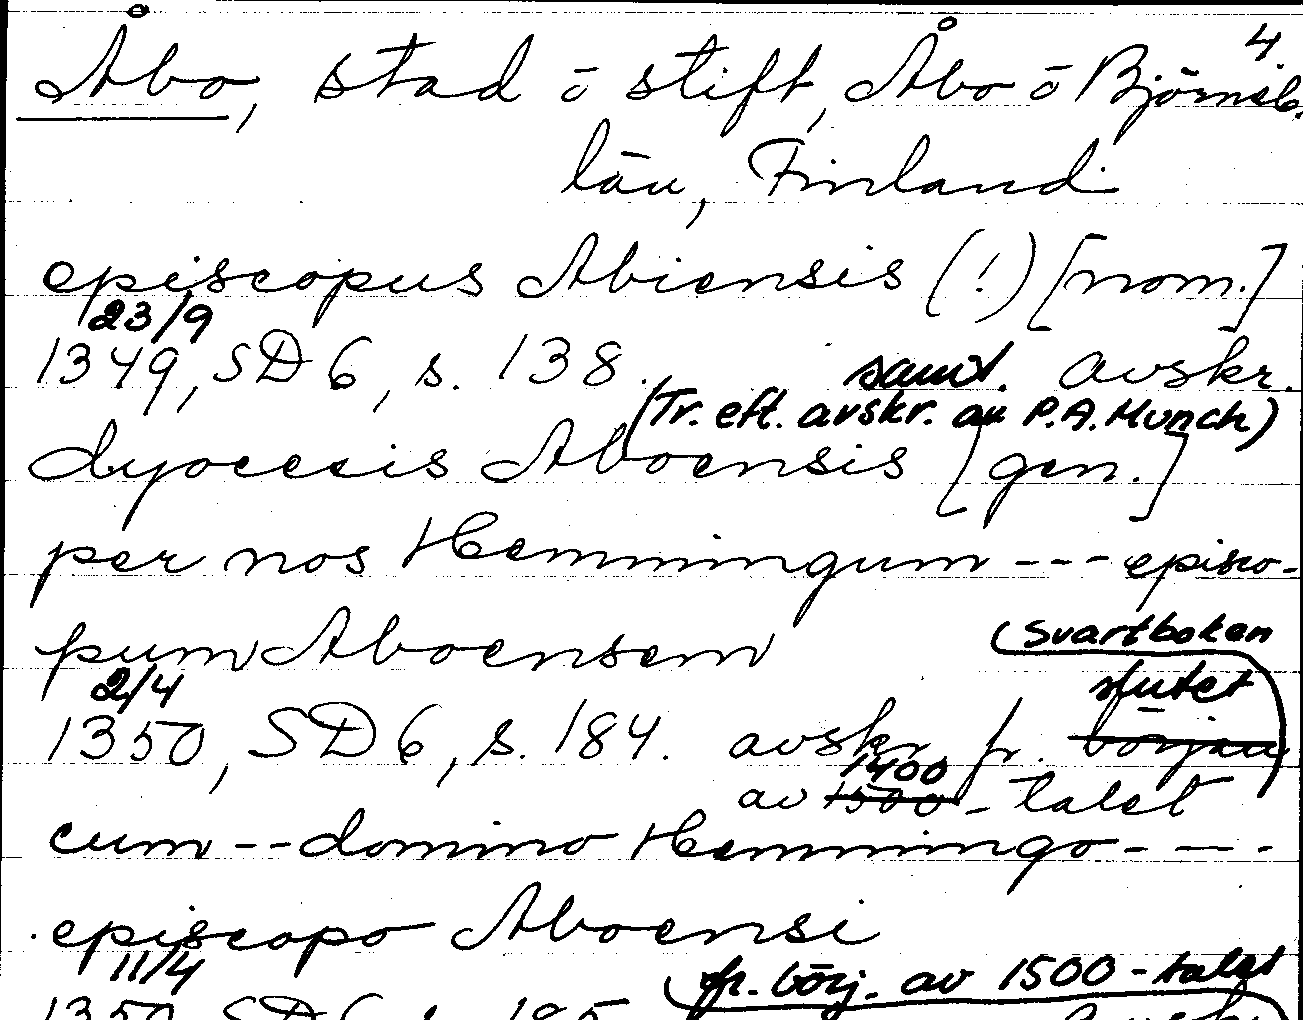 4.
Åbo, stad ō stift, Åbo ō Björneb.
län, Finland
episcopus Abiensis (!) [nom.]
23/9
1349, SD 6, s. 138. samt. avskr.
(Tr. eft. avskr. av P.A. Munch)
dyocesis Aboensis [gen.]
per nos Hemmingum --- episco-
pum Aboensem
(svartboken
2/4 slutet
1350, SD 6, s. 184. avskr. fr. början)
1400
av 1500-talet
cum -- domino Hemmingo ----
episcopo Aboensi
11/4 (fr. börj. av 1500-talet
1350, SD 6, s. 185 Avskr